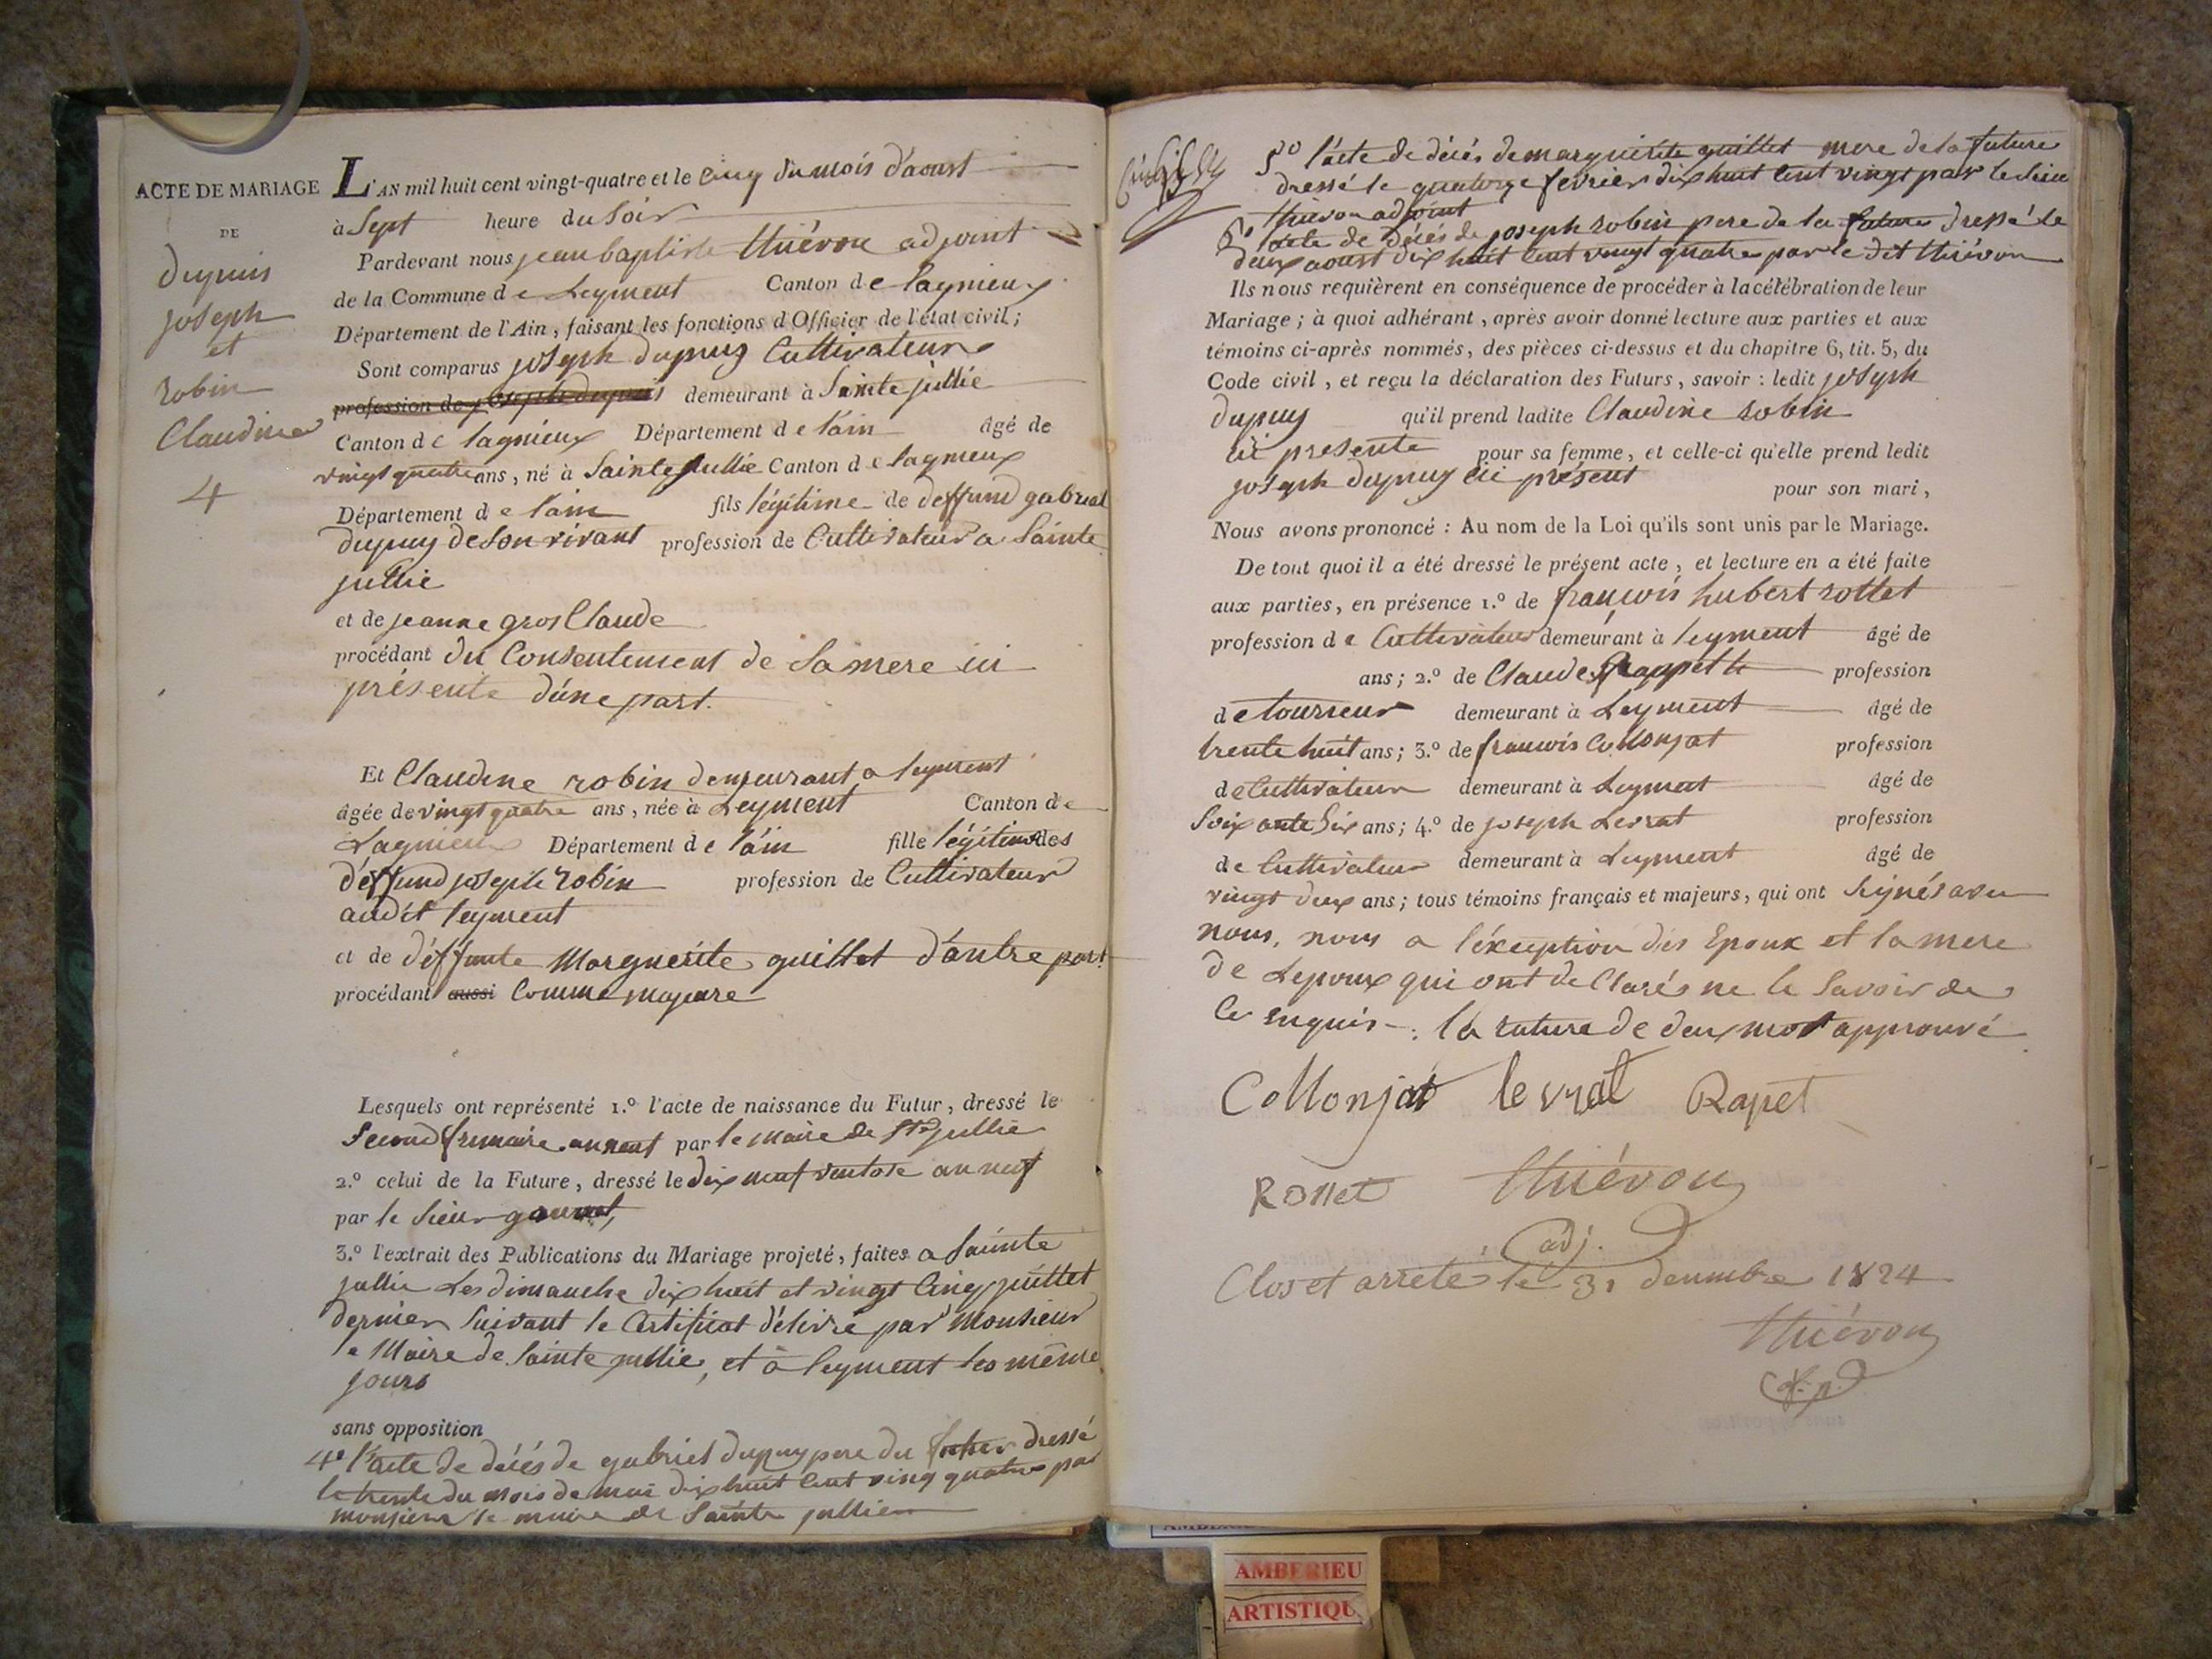 ACTE DE MARIAGE
DE
dupuis
joseph
et
robin
Claudine
4
L'AN mil huit cent vingt-quatre et le cinq du mois d'aoust
à Sept heure du Soir
Pardevant nous jean baptiste thiévon adjoint
de la Commune de Leyment Canton de lagnieux
Département de l'Ain, faisant les fonctions d'Officier de l'état civil;
Sont comparus joseph dupuy Cultivateur
profession de joseph dupuis demeurant à Sainte jullie
Canton de lagnieux Département de l'ain âgé de
vingt quatre ans, né à Sainte jullie Canton de lagnieux
Département de l'ain fils légitime de deffund gabriel
dupuy de Son vivant profession de Cultivateur a Sainte
jullie
et de jeanne gros Claude
procédant du Consentement de Sa mere ici
présente d'une part.
Et Claudine robin demeurant a leyment
âgée de vingt quatre ans, née à Leyment Canton de
Lagnieux Département de l'ain fille légitime des
déffund joseph robin profession de Cultivateur
audit leyment
et de déffunte Marguerite guillet d'autre part.
procédant aussi Comme majeure
Lesquels ont représenté 1.º l'acte de naissance du Futur, dressé le
Second frimaire an neuf par le maire de Ste jullie
2.º celui de la Future, dressé le dix neuf ventose an neuf
par le Sieur
3.º l'extrait des Publications du Mariage projeté, faites a Sainte
jullie Les dimanche dix huit et vingt Cinq juillet
dernier Suivant le Certificat délivré par Monsieur
le Maire de Sainte jullie, et à leyment les même
jours
sans opposition
4º l'acte de décés de gabriel dupuy pere du futur dressé
le trente du mois de mai dix huit Cent vingt quatre par
monsieur le maire de Sainte jullie
5º l'acte de décés de marguerite guillet mere de la future
dressé le quatorze fevrier dix huit Cent vingt par le Sieur
thiévon adjoint
6º acte de décés de joseph robin pere de la future dressé le
deux aoust dix huit Cent vingt quatre par le dit thiévon
Ils nous requièrent en conséquence de procéder à la célébration de leur
Mariage; à quoi adhérant, après avoir donné lecture aux parties et aux
témoins ci-après nommés, des pièces ci-dessus et du chapitre 6, tit. 5, du
Code civil, et reçu la déclaration des Futurs, savoir: ledit joseph
dupuy qu'il prend ladite Claudine robin
ici presente pour sa femme, et celle-ci qu'elle prend ledit
joseph dupuy ici présent pour son mari,
Nous avons prononcé: Au nom de la Loi qu'ils sont unis par le Mariage.
De tout quoi il a été dressé le présent acte, et lecture en a été faite
aux parties, en présence 1.º de françois hubert rollet
profession de Cultivateur demeurant à leyment âgé de
ans; 2.º de Claude profession
de tourneur demeurant à Leyment âgé de
trente huit ans; 3.º de françois Collonjat profession
de Cultivateur demeurant à Leyment âgé de
Soixante Six ans; 4.º de joseph Levrat profession
de Cultivateur demeurant à Leyment âgé de
vingt deux ans; tous témoins français et majeurs, qui ont Signés avec
nous, nous a l'éxception des Epoux et la mere
de Lepoux qui ont de Clarés ne le Savoir de
Ce enquis. la rature de deux mot approuvé
Collonjat levrat Rapet
Rollet thiévon
adj.
Clos et arreté le 31 decembre 1824
thiévon
AMBERIEU
ARTISTIQU